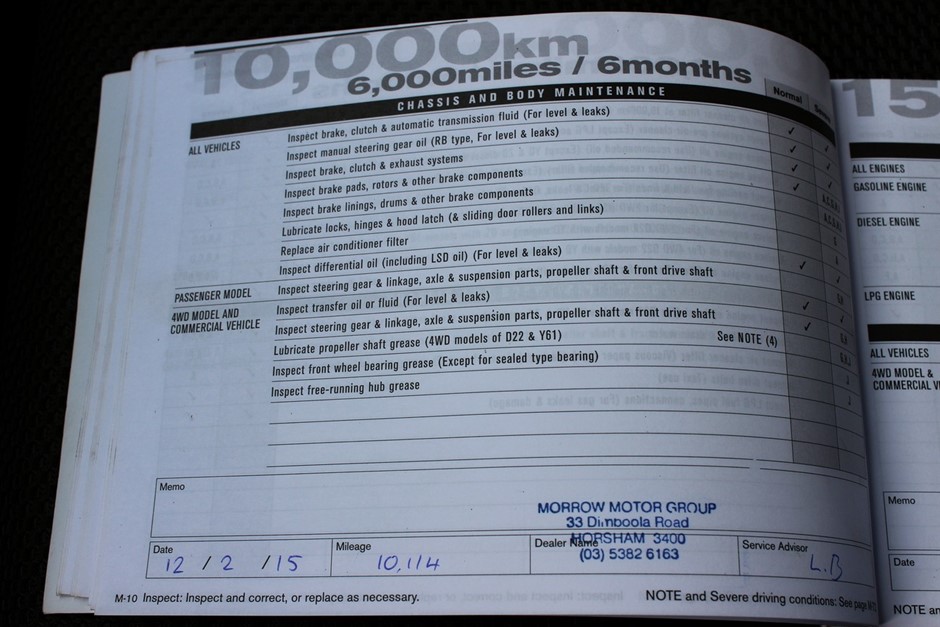 10,000km
6,000miles / 6months
CHASSIS AND BODY MAINTENANCE
Normal
ALL VEHICLES
Inspect brake, clutch & automatic transmission fluid (For level & leaks)
Inspect manual steering gear oil (RB type, For level & leaks) ✓
Inspect brake, clutch & exhaust systems ✓
Inspect brake pads, rotors & other brake components ✓
Inspect brake linings, drums & other brake components ✓
Lubricate locks, hinges & hood latch (& sliding door rollers and links)
Replace air conditioner filter
Inspect differential oil (including LSD oil) (For level & leaks)
PASSENGER MODEL
Inspect steering gear & linkage, axle & suspension parts, propeller shaft & front drive shaft ✓
4WD MODEL AND
COMMERCIAL VEHICLE
Inspect transfer oil or fluid (For level & leaks)
Inspect steering gear & linkage, axle & suspension parts, propeller shaft & front drive shaft ✓
Lubricate propeller shaft grease (4WD models of D22 & Y61) See NOTE (4) ✓
Inspect front wheel bearing grease (Except for sealed type bearing)
Inspect free-running hub grease
Memo
MORROW MOTOR GROUP
33 Dimboola Road
HORSHAM 3400
(03) 5382 6163
Date
12 / 2 / 15
Mileage
10,114
Dealer Name
Service Advisor
L.B
M-10 Inspect: Inspect and correct, or replace as necessary.
NOTE and Severe driving conditions: See page
15
ALL ENGINES
GASOLINE ENGINE
DIESEL ENGINE
LPG ENGINE
ALL VEHICLES
4WD MODEL &
COMMERCIAL
Memo
Date
NOTE